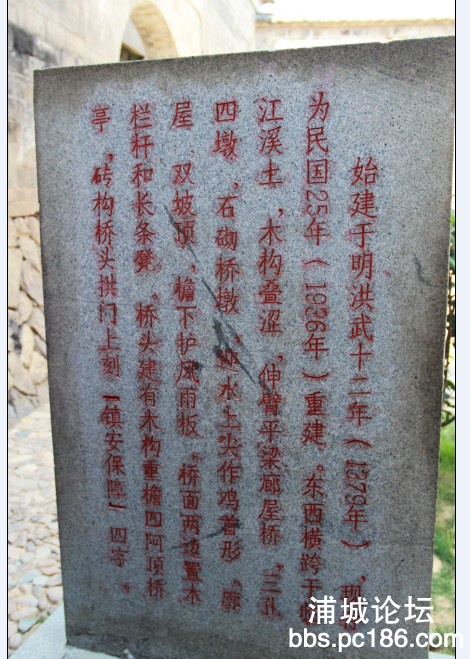 始建于明洪武十二年（1379年），现
为民国25年（1936年）重建。东西横跨于临
江溪上，木构叠涩，伸臂平梁廊屋桥，三孔
四墩，石砌桥墩，迎水上尖作鸡首形。廊
屋，双坡顶，檐下护风雨板。桥面两边置木
栏杆和长条凳。桥头建有木构重檐四阿顶桥
亭，砖构桥头拱门上刻「镇安保障」四字。
浦城论坛
bbs.pc186.com